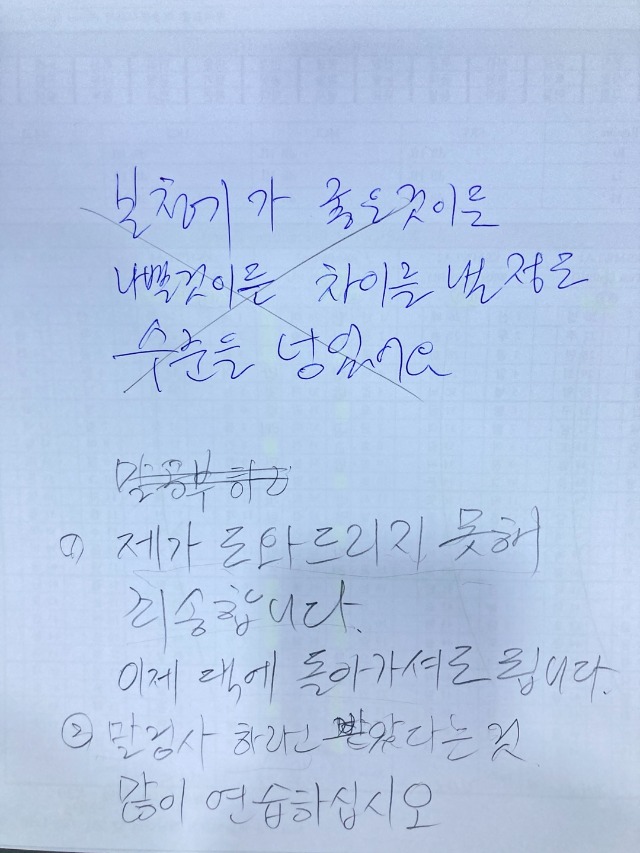 보청기가 좋은것이든
나쁜것이든 차이를 낼 정도
수준을 넘었어요
말공부 하러
① 제가 도와드리지 못해
죄송합니다.
이제 댁에 돌아가셔도 됩니다.
② 말검사 하라고 받았다는 것
많이 연습하십시오